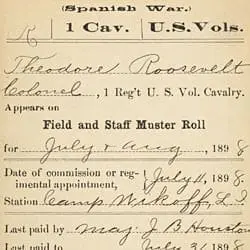 (Spanish War.)
R 1 Cav. U.S. Vols.
Theodore Roosevelt
Colonel, 1 Reg't U. S. Vol. Cavalry.
Appears on
Field and Staff Muster Roll
for July & Aug, 1898
Date of commission or reg-
imental appointment, July 11, 1898
Station Camp Wikoff, L. I.
Last paid by Maj. J B Houston
Last paid to July 31, 189